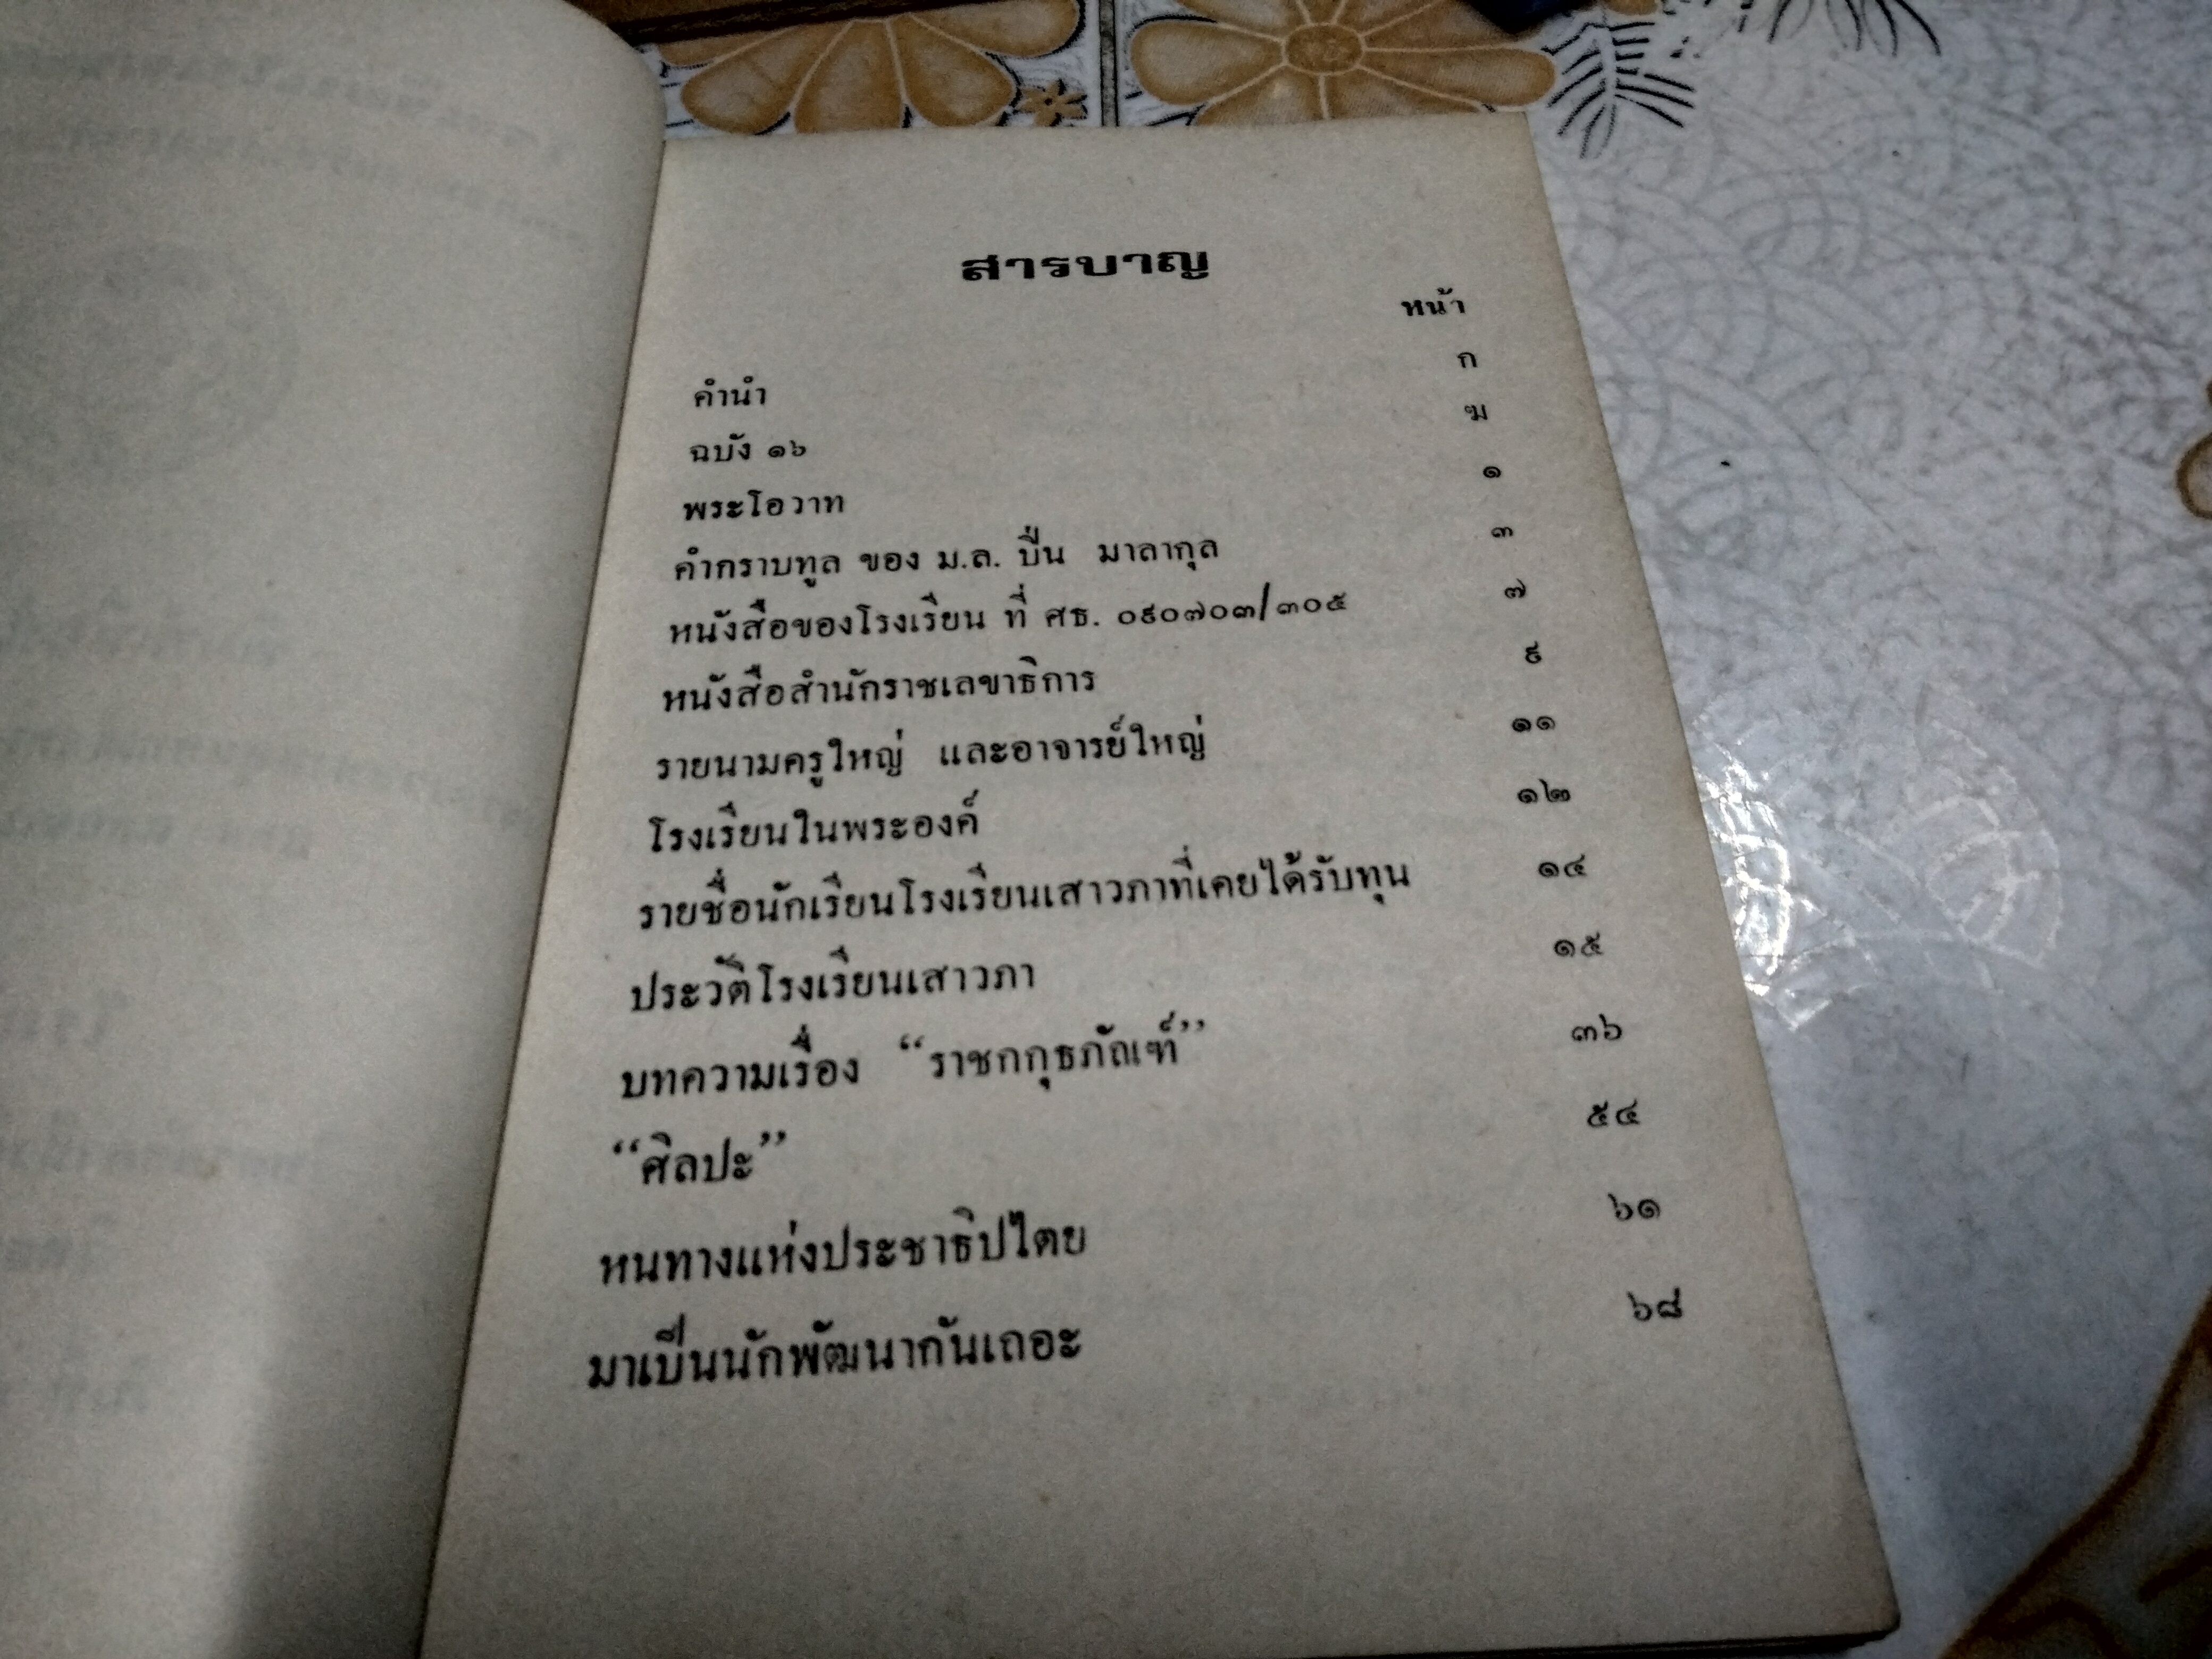 สารบาญ
หน้า
คำนำ ก
ฉบัง ๑๖ ฆ
พระโอวาท ๑
คำกราบทูล ของ ม.ล. ปิ่น มาลากุล ๓
หนังสือของโรงเรียน ที่ ศธ. ๐๙๐๗๐๓/๓๐๕ ๗
หนังสือสำนักราชเลขาธิการ ๙
รายนามครูใหญ่ และอาจารย์ใหญ่ ๑๑
โรงเรียนในพระองค์ ๑๒
รายชื่อนักเรียนโรงเรียนเสาวภาที่เคยได้รับทุน ๑๔
ประวัติโรงเรียนเสาวภา ๑๕
บทความเรื่อง “ราชกกุธภัณฑ์” ๓๖
“ศิลปะ” ๕๔
หนทางแห่งประชาธิปไตย ๖๑
มาเป็นนักพัฒนากันเถอะ ๖๘